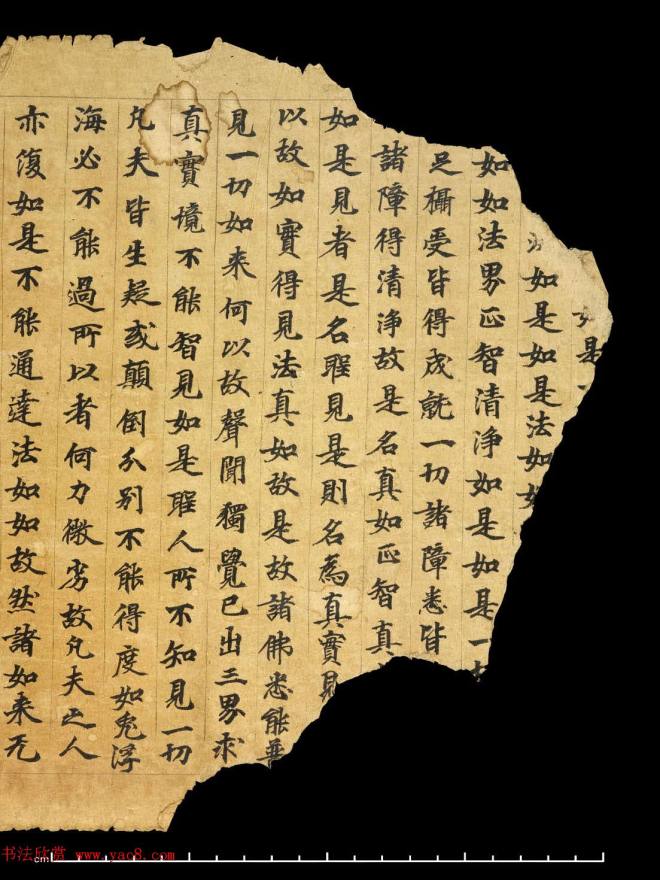 如是一
如是如是法如如
如如法界正智清淨如是如是一
足攝受皆得成就一切諸障悉皆
諸障得清淨故是名真如正智真
如是見者是名聖見是則名為真實見
以故如實得見法真如故是故諸佛悉能普
見一切如来何以故聲聞獨覺已出三界求
真實境不能智見如是聖人所不知見一切
凡夫皆生疑或顛倒分別不能得度如兔浮
海必不能過所以者何力微劣故凡夫之人
亦復如是不能通達法如如故然諸如来无
书法欣赏 www.yac8.com
cm